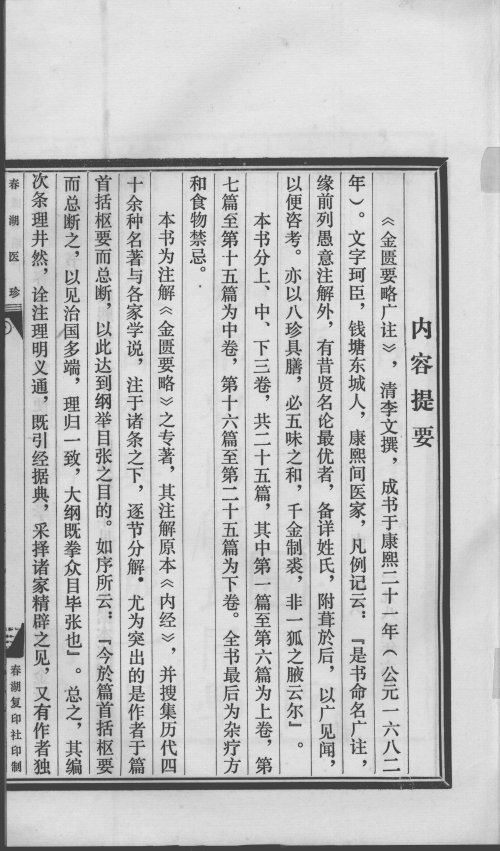 内容提要
《金匮要略广注》，清李文撰，成书于康熙二十一年（公元一六八二
年）。文字珂臣，钱塘东城人，康熙间医家，凡例记云：『是书命名广注，
缘前列愚意注解外，有昔贤名论最优者，备详姓氏，附葺於后，以广见闻，
以便咨考。亦以八珍具膳，必五味之和，千金制裘，非一狐之腋云尔』。
本书分上、中、下三卷，共二十五篇，其中第一篇至第六篇为上卷，第
七篇至第十五篇为中卷，第十六篇至第二十五篇为下卷。全书最后为杂疗方
和食物禁忌。
本书为注解《金匮要略》之专著，其注解原本《内经》，并搜集历代四
十余种名著与各家学说，注于诸条之下，逐节分解。尤为突出的是作者于篇
首括枢要而总断，以此达到纲举目张之目的。如序所云：『今於篇首括枢要
而总断之，以见治国多端，理归一致，大纲既拳众目毕张也』。总之，其编
次条理井然，诠注理明义通，既引经据典，采择诸家精辟之见，又有作者独
春湖医珍
春湖复印社印制